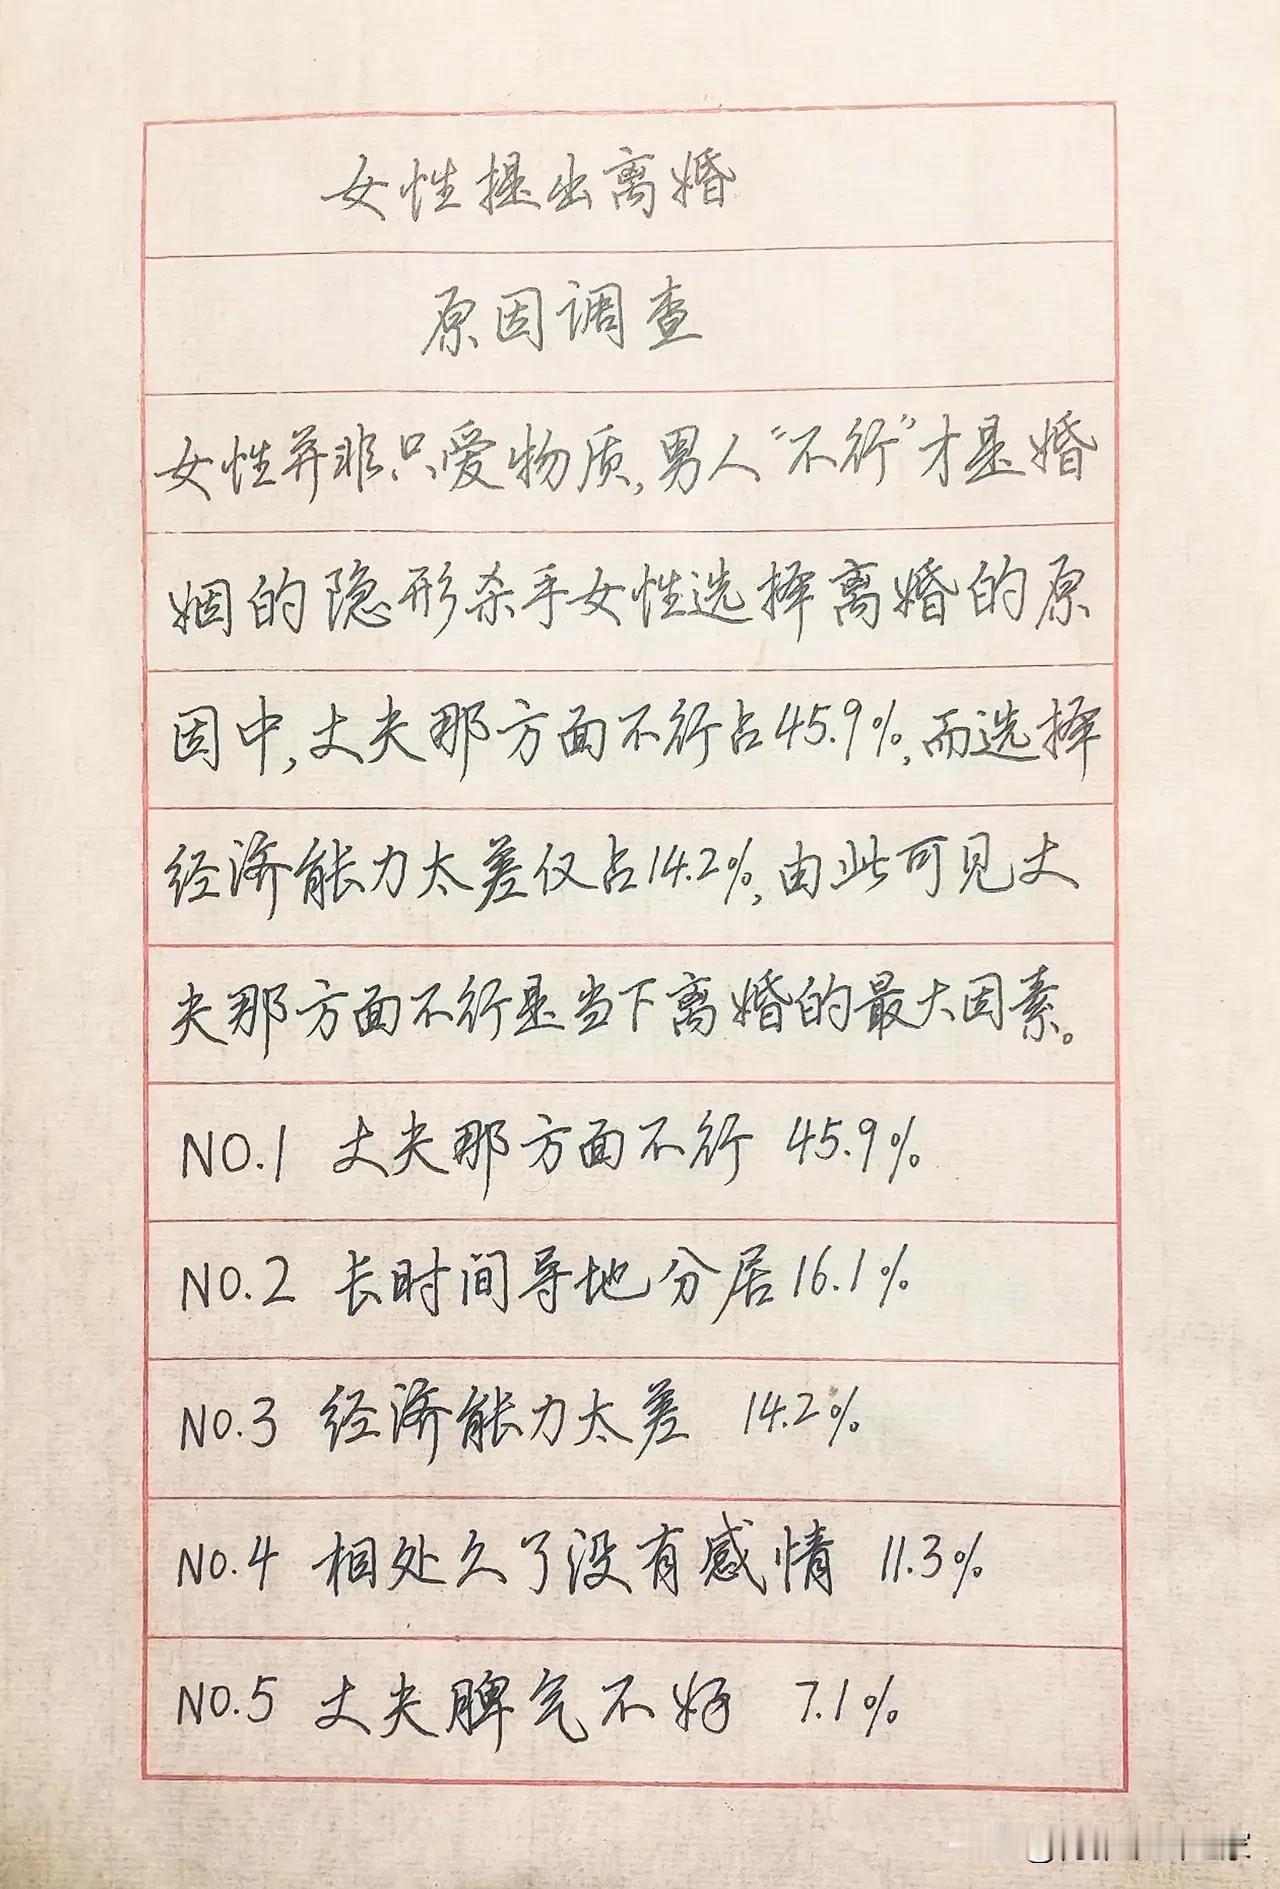 女性提出离婚
原因调查
女性并非只爱物质,男人“不行”才是婚
姻的隐形杀手女性选择离婚的原
因中,丈夫那方面不行占45.9%,而选择
经济能力太差仅占14.2%,由此可见丈
夫那方面不行是当下离婚的最大因素。
NO.1 丈夫那方面不行 45.9%
NO.2 长时间异地分居16.1%
NO.3 经济能力太差 14.2%
NO.4 相处久了没有感情 11.3%
NO.5 丈夫脾气不好 7.1%